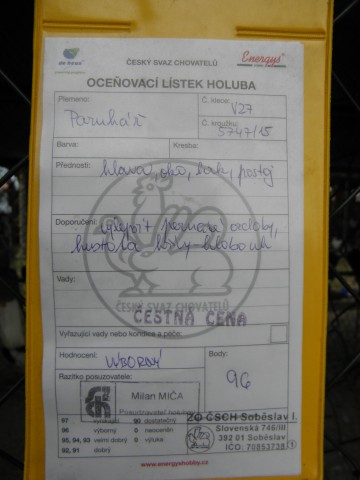 ČESKÝ SVAZ CHOVATELŮ
Energys
OCEŇOVACÍ LÍSTEK HOLUBA
Plemeno:
Č. klece: V27
Parukář
Č. kroužku: 5747/15
Barva: Kresba:
Přednosti: hlava, oko, zob, postoj
Doporučení: vylepšit
hustota
Vady:
ČESKÝ SVAZ CHOVATELŮ
ČESTNÁ CENA
Vyřazující vady nebo kondice a péče:
Hodnocení: VÝBORNÝ
Body: 96
Razítko posuzovatele:
Milan MIČA
Posuzovatel holubů
97 vynikající 90 dostatečný
96 výborný 0 neoceněn
95, 94, 93 velmi dobrý 0 výluka
92, 91 dobrý
ZO ČSCH Soběslav I.
Slovenská 746/III
392 01 Soběslav
IČO: 70853738 1
www.energyshobby.cz